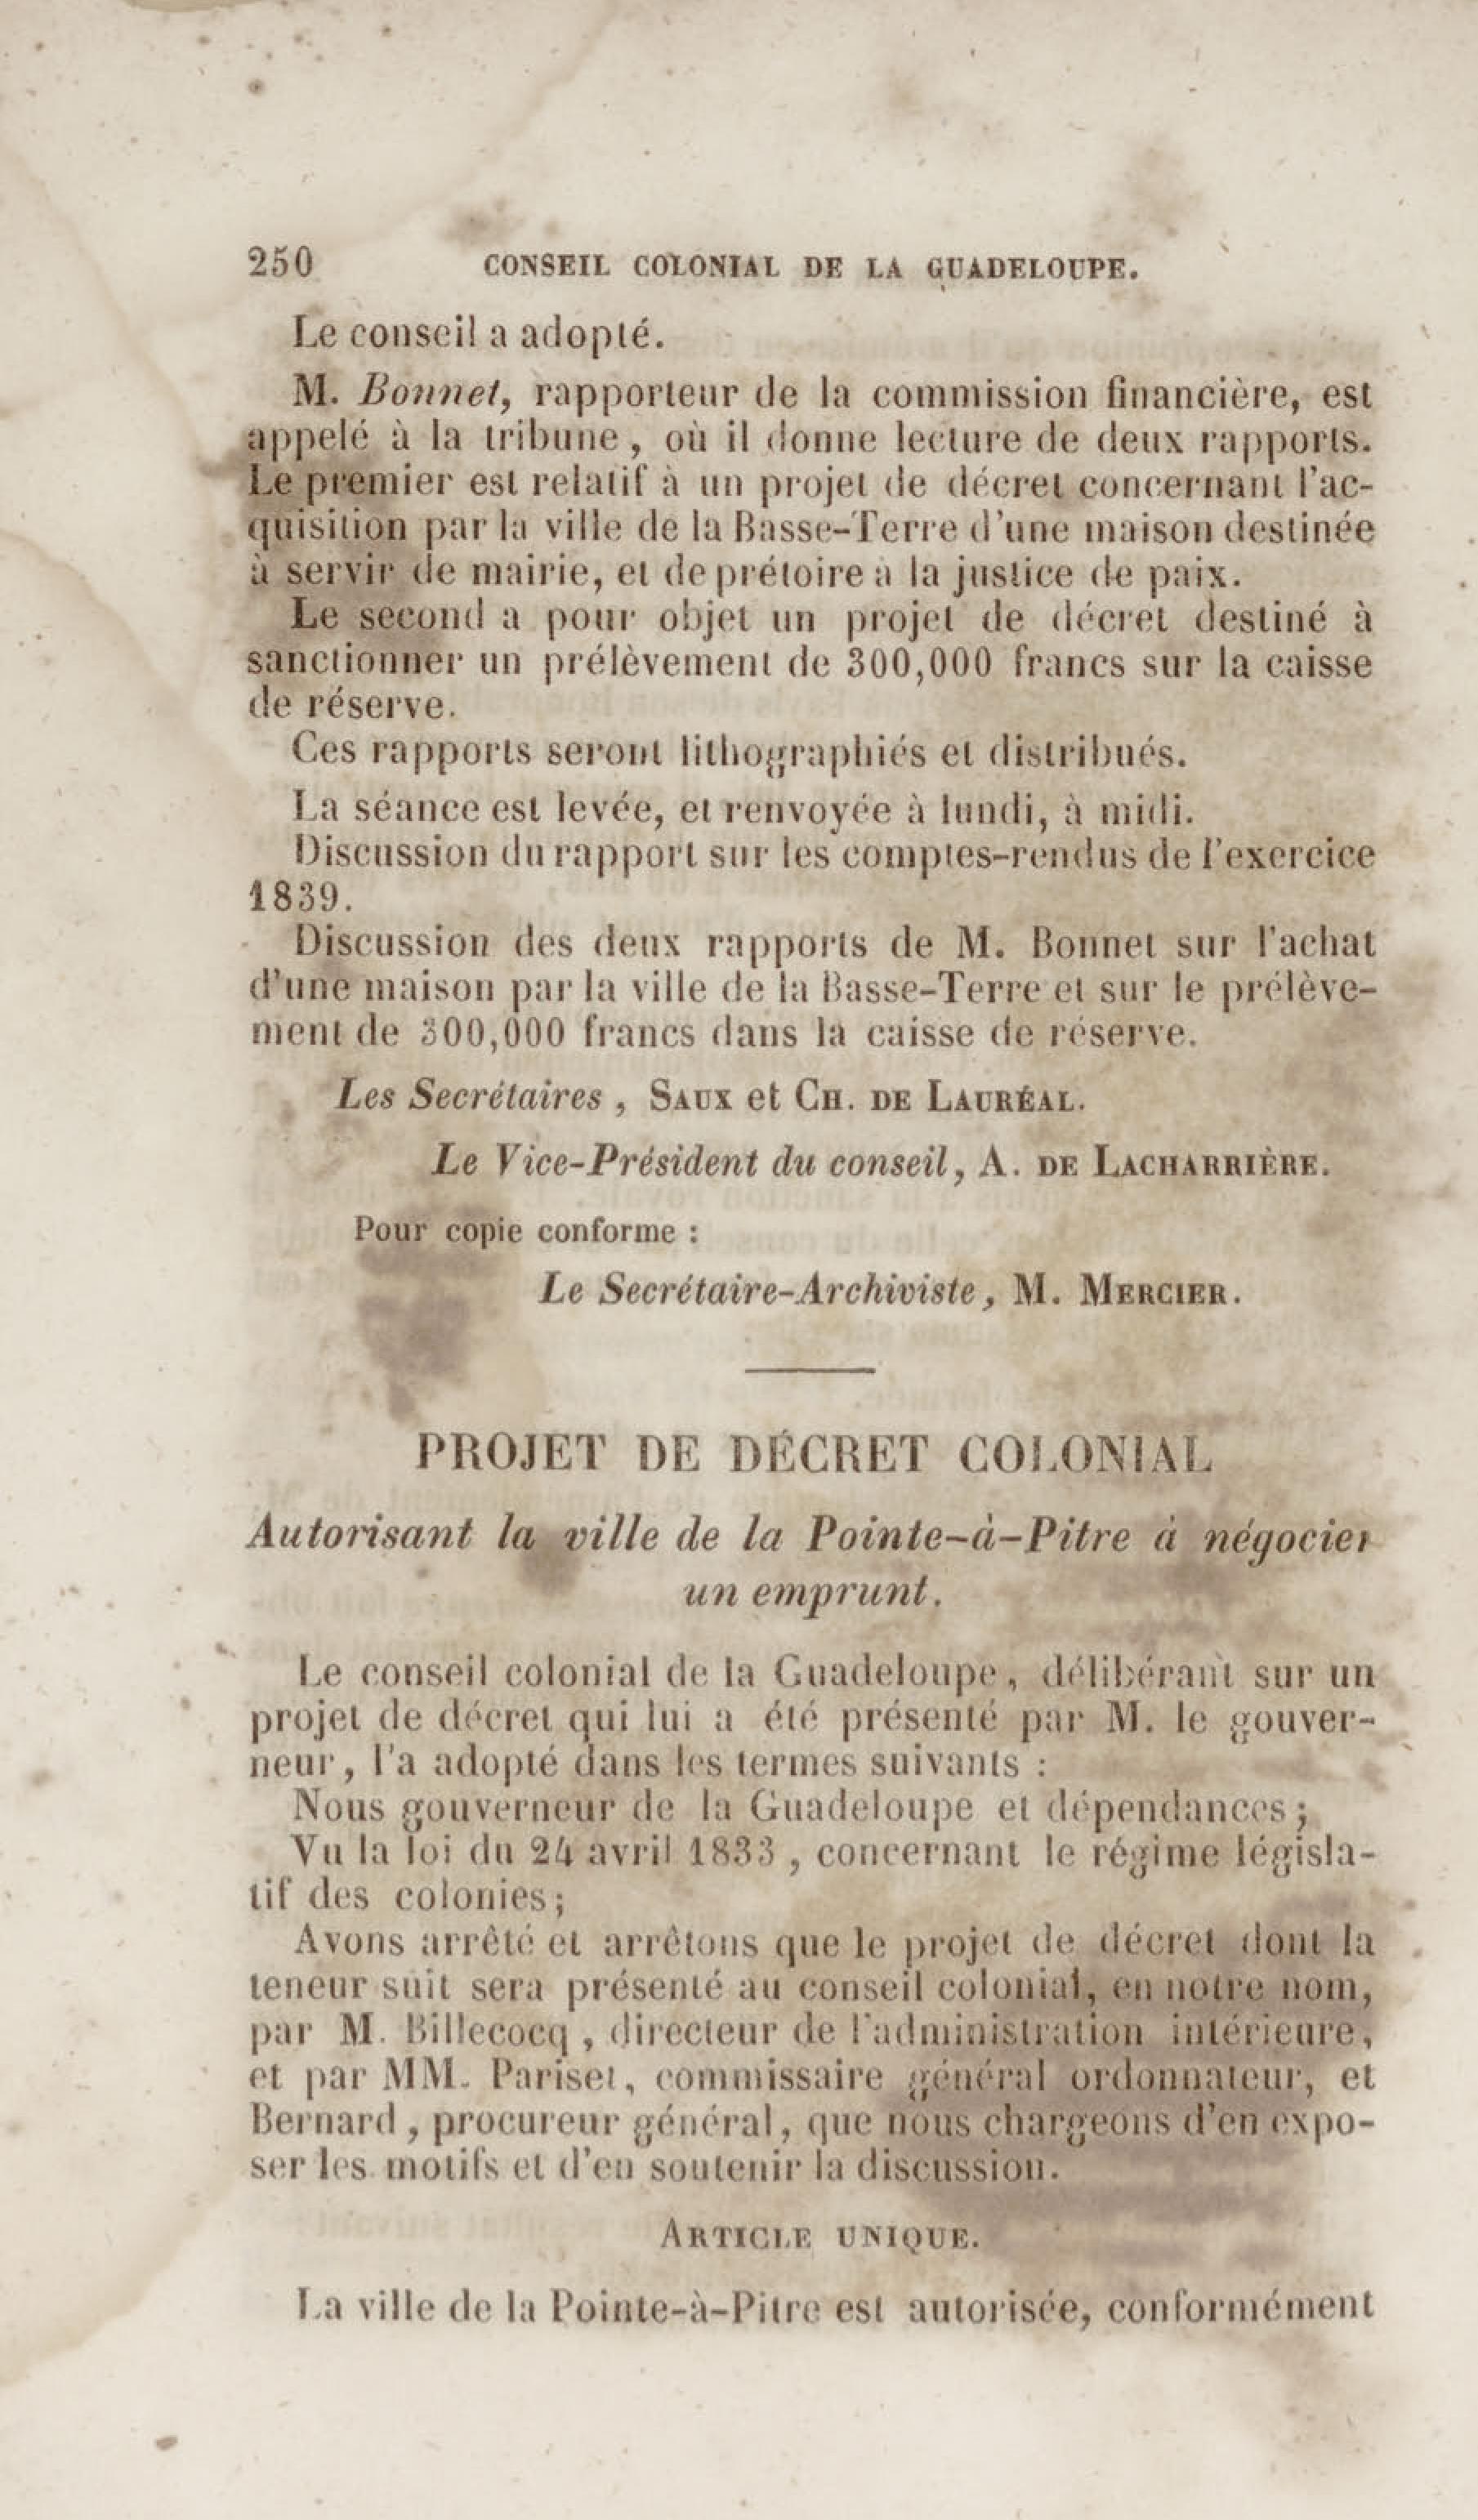 250 CONSEIL COLONIAL DE LA GUADELOUPE.
Le conseil a adopté.
M. Bonnet, rapporteur de la commission financière, est
appelé à la tribune, où il donne lecture de deux rapports.
Le premier est relatif à un projet de décret concernant l'ac-
quisition par la ville de la Basse-Terre d'une maison destinée
à servir de mairie, et de prétoire à la justice de paix.
Le second a pour objet un projet de décret destiné à
sanctionner un prélèvement de 300,000 francs sur la caisse
de réserve.
Ces rapports seront lithographiés et distribués.
La séance est levée, et renvoyée à lundi, à midi.
Discussion du rapport sur les comptes-rendus de l'exercice
1839.
Discussion des deux rapports de M. Bonnet sur l'achat
d'une maison par la ville de la Basse-Terre et sur le prélève-
ment de 300,000 francs dans la caisse de réserve.
Les Secrétaires, SAUX et CH. DE LAURÉAL.
Le Vice-Président du conseil, A. DE LACHARRIÈRE.
Pour copie conforme :
Le Secrétaire-Archiviste, M. MERCIER.
PROJET DE DÉCRET COLONIAL
Autorisant la ville de la Pointe-à-Pitre à négocier
un emprunt.
Le conseil colonial de la Guadeloupe, délibérant sur un
projet de décret qui lui a été présenté par M. le gouver-
neur, l'a adopté dans les termes suivants :
Nous gouverneur de la Guadeloupe et dépendances;
Vu la loi du 24 avril 1833, concernant le régime législa-
tif des colonies;
Avons arrêté et arrêtons que le projet de décret dont la
teneur suit sera présenté au conseil colonial, en notre nom,
par M. Billecocq, directeur de l'administration intérieure,
et par MM. Pariset, commissaire général ordonnateur, et
Bernard, procureur général, que nous chargeons d'en expo-
ser les motifs et d'en soutenir la discussion.
ARTICLE UNIQUE.
La ville de la Pointe-à-Pitre est autorisée, conformément